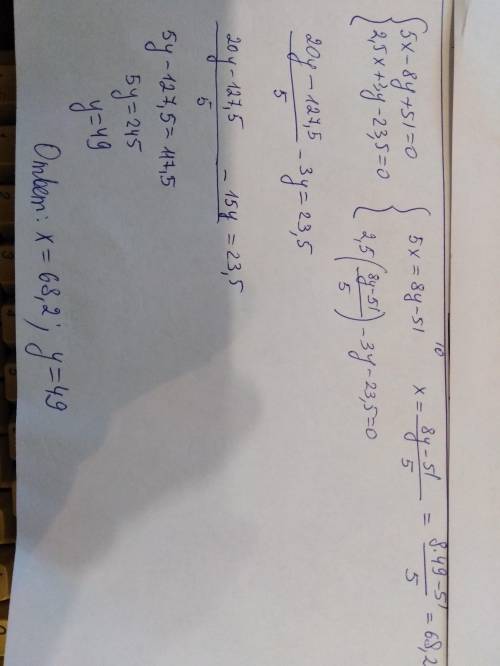 { 5x - 8y + 51 = 0
2,5x + 3y - 23,5 = 0
{ 5x = 8y - 51
2,5 ( (8y - 51) / 5 ) - 3y - 23,5 = 0
10
x = (8y - 51) / 5 = (8·49 - 51) / 5 = 68,2
(20y - 127,5) / 5 - 3y = 23,5
(20y - 127,5 - 15y) / 5 = 23,5
5y - 127,5 = 117,5
5y = 245
y = 49
Ответ: x = 68,2; y = 49